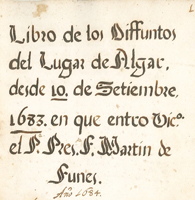 Libro de los Diffuntos
del Lugar de Algar,
desde 10. de Setiembre,
1683. en que entro Vic.º
el P. Pres. F. Martin de
Funes.
Año 1684.